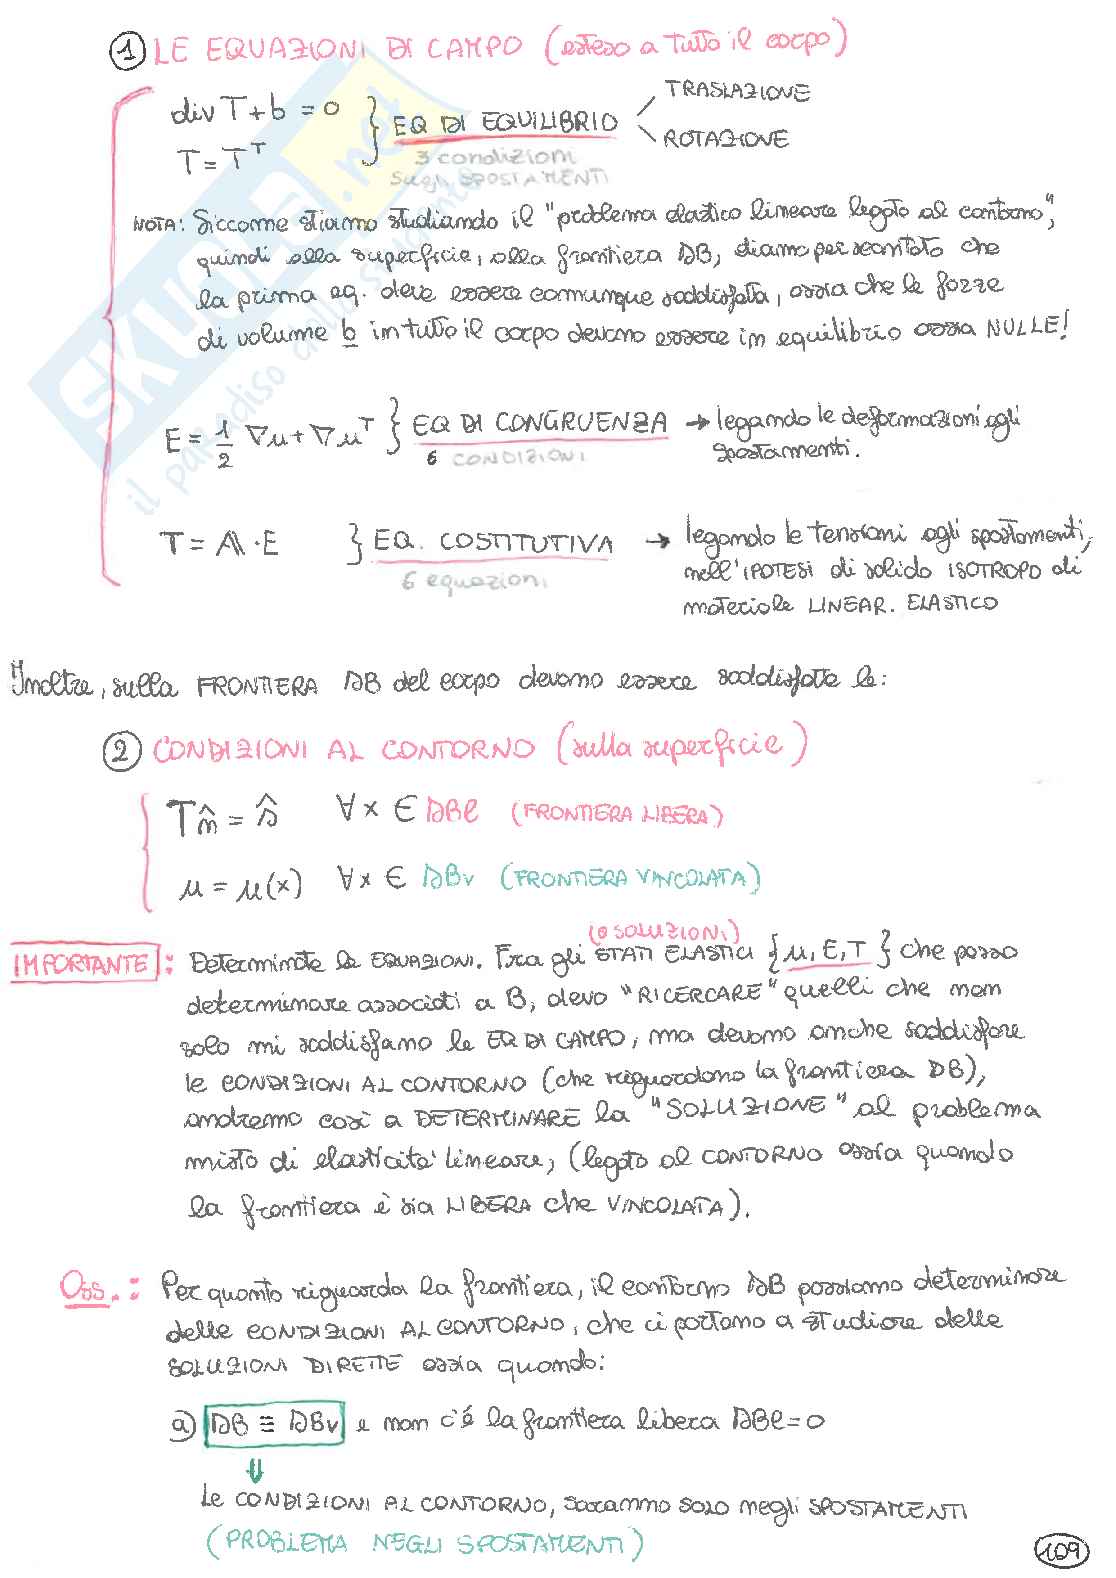 ① LE EQUAZIONI DI CAMPO (esteso a tutto il corpo)
div T + b = 0 } EQ DI EQUILIBRIO TRASLAZIONE
T = Tᵀ ROTAZIONE
3 condizioni
sugli SPOSTAMENTI
NOTA: Siccome stiamo studiando il "problema elastico lineare legato al contorno",
quindi alla superficie, alla frontiera ∂B, diamo per scontato che
la prima eq. deve essere comunque soddisfatta, ossia che le forze
di volume b in tutto il corpo devono essere in equilibrio ossia NULLE!
E = 1/2 ∇u + ∇uᵀ } EQ DI CONGRUENZA → legando le deformazioni agli
6 CONDIZIONI spostamenti.
T = 𝔸 · E } EQ. COSTITUTIVA → legando le tensioni agli spostamenti,
6 equazioni nell'IPOTESI di solido ISOTROPO di
materiale LINEAR. ELASTICO
Inoltre, sulla FRONTIERA ∂B del corpo devono essere soddisfatte le:
② CONDIZIONI AL CONTORNO (sulla superficie)
T n̂ = ŝ ∀ x ∈ ∂Bl (FRONTIERA LIBERA)
u = u(x) ∀ x ∈ ∂Bv (FRONTIERA VINCOLATA)
(o SOLUZIONI)
IMPORTANTE: Determinate le EQUAZIONI. Fra gli STATI ELASTICI {u, E, T} che posso
determinare associati a B, devo "RICERCARE" quelli che non
solo mi soddisfano le EQ DI CAMPO, ma devono anche soddisfare
le CONDIZIONI AL CONTORNO (che riguardono la frontiera ∂B),
andremo così a DETERMINARE la "SOLUZIONE" al problema
misto di elasticità lineare, (legato al CONTORNO ossia quando
la frontiera è sia LIBERA che VINCOLATA).
Oss.: Per quanto riguarda la frontiera, il contorno ∂B possiamo determinare
delle CONDIZIONI AL CONTORNO, che ci portano a studiare delle
SOLUZIONI DIRETTE ossia quando:
a) ∂B ≡ ∂Bv e non c'è la frontiera libera ∂Bl = 0
⇓
Le CONDIZIONI AL CONTORNO, saranno solo negli SPOSTAMENTI
(PROBLEMA NEGLI SPOSTAMENTI)
109
SKUOLA.net
il paradiso dello studente